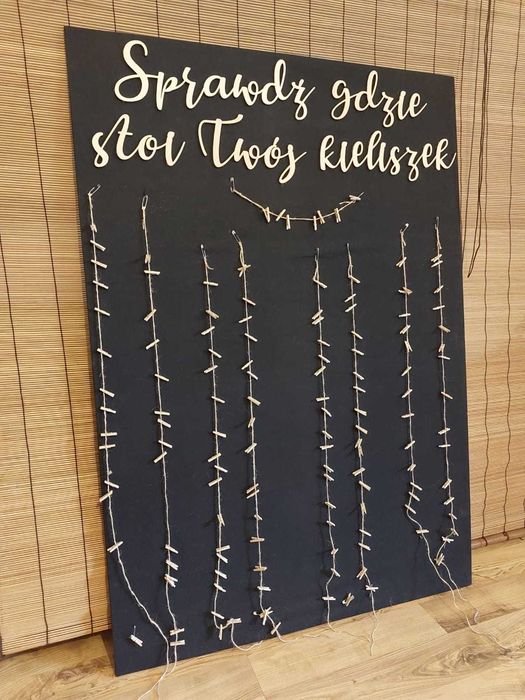 Sprawdź gdzie
stoi Twój kieliszek